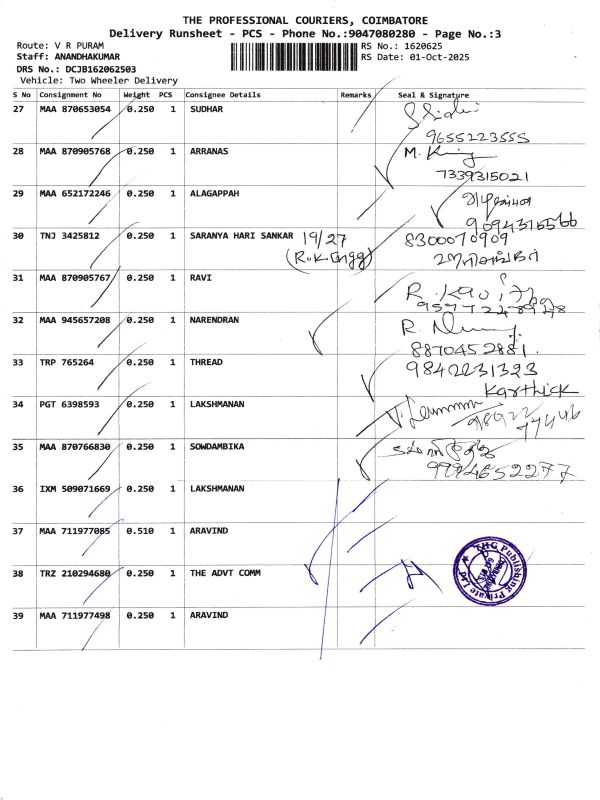 THE PROFESSIONAL COURIERS, COIMBATORE
Delivery Runsheet - PCS - Phone No.:9047080280 - Page No.:3
Route: V R PURAM
RS No.: 1620625
Staff: ANANDHAKUMAR
RS Date: 01-Oct-2025
DRS No.: DCJB162062503
Vehicle: Two Wheeler Delivery
S No Consignment No Weight PCS Consignee Details Remarks Seal & Signature
27 MAA 870653054 0.250 1 SUDHAR
9655223555
28 MAA 870905768 0.250 1 ARRANAS M.
7339315021
29 MAA 652172246 0.250 1 ALAGAPPAH
30 TNJ 3425812 0.250 1 SARANYA HARI SANKAR 19/27 8300070909
31 MAA 870905767 0.250 1 RAVI R.
32 MAA 945657208 0.250 1 NARENDRAN R.
8870452881.
33 TRP 765264 0.250 1 THREAD 9842231323
Karthick
34 PGT 6398593 0.250 1 LAKSHMANAN
35 MAA 870766830 0.250 1 SOWDAMBIKA
9794652277
36 IXM 509071669 0.250 1 LAKSHMANAN
37 MAA 711977085 0.510 1 ARAVIND
38 TRZ 210294680 0.250 1 THE ADVT COMM
THG Publishing Private Ltd
39 MAA 711977498 0.250 1 ARAVIND